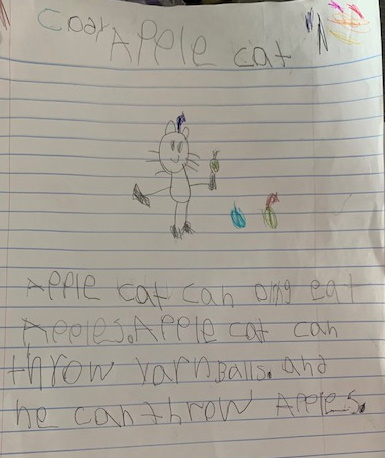 Coar Apple cat "N
Apple cat can ong eat
Apples. Apple cat can
throw Yarn Balls. and
he can throw Apples.